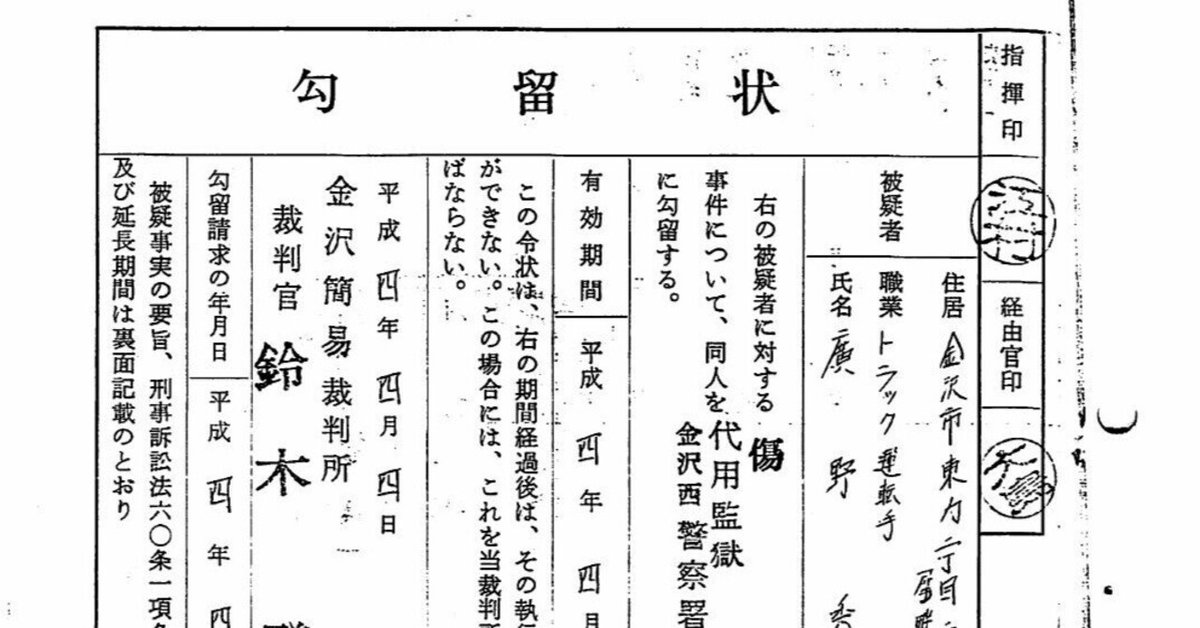 勾留状
指揮印
経由官印
被疑者
住居 金沢市東力二丁目
職業 トラック運転手
氏名 廣野
右の被疑者に対する 傷
事件について、同人を 代用監獄
金沢西警察署
に勾留する。
有効期間 平成四年四月
この令状は、右の期間経過後は、その執行
ができない。この場合には、これを当裁判所
ばならない。
平成四年四月四日
金沢簡易裁判所
裁判官 鈴木
勾留請求の年月日 平成四年四
被疑事実の要旨、刑事訴訟法六〇条一項各
及び延長期間は裏面記載のとおり